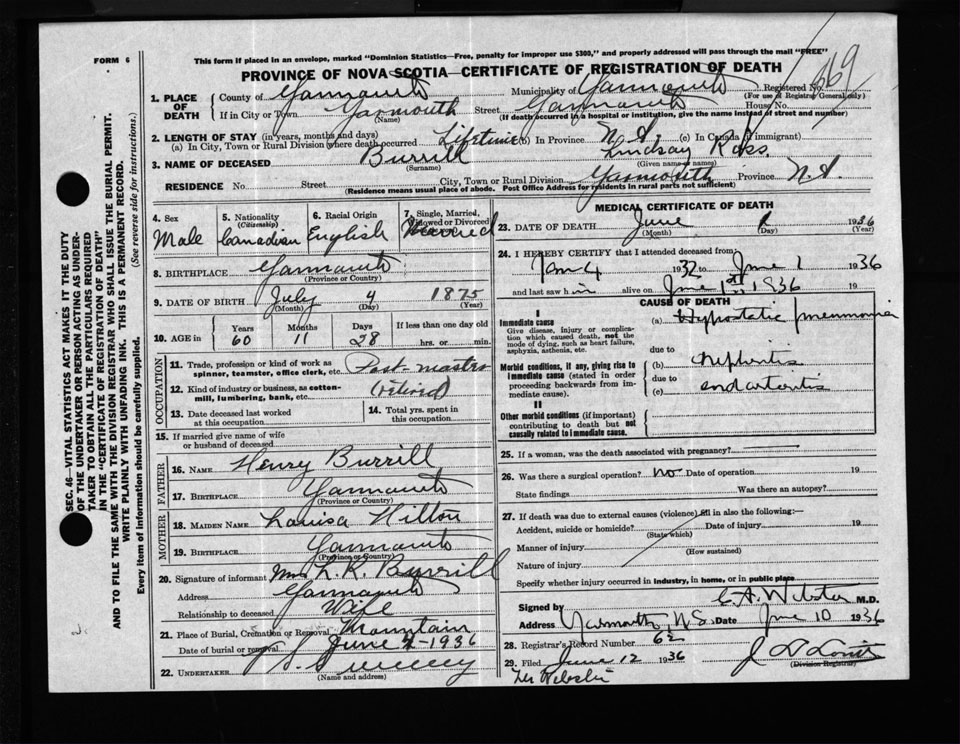 FORM 6
This form if placed in an envelope, marked "Dominion Statistics—Free, penalty for improper use $300," and properly addressed will pass through the mail "FREE"
PROVINCE OF NOVA SCOTIA—CERTIFICATE OF REGISTRATION OF DEATH
Registered No. 569
(For use of Registrar Generally only)
1. PLACE OF DEATH
County of Yarmouth Municipality of Yarmouth
If in City or Town Yarmouth Street Yarmouth House No.
(Name) (If death occurred in a hospital or institution, give the name instead of street and number)
2. LENGTH OF STAY (in years, months and days)
(a) In City, Town or Rural Division where death occurred Lifetime (b) In Province N.S. (c) In Canada (if immigrant)
3. NAME OF DECEASED Burrill Lindsay Ross
(Surname) (Given name or names)
RESIDENCE No. Street City, Town or Rural Division Yarmouth Province N.S.
(Residence means usual place of abode. Post Office Address for residents in rural parts not sufficient)
4. Sex Male
5. Nationality (Citizenship) Canadian
6. Racial Origin English
7. Single, Married, Widowed or Divorced Married
8. BIRTHPLACE Yarmouth
(Province or Country)
9. DATE OF BIRTH July 4 1875
(Month) (Day) (Year)
10. AGE Years 60 Months 11 Days 28 If less than one day old hrs. or min.
OCCUPATION
11. Trade, profession or kind of work as spinner, teamster, office clerk, etc. Post-master
12. Kind of industry or business, as cotton-mill, lumbering, bank, etc. (retired)
13. Date deceased last worked at this occupation
14. Total yrs. spent in this occupation
15. If married give name of wife or husband of deceased
FATHER
16. NAME Henry Burrill
17. BIRTHPLACE Yarmouth
(Province or Country)
MOTHER
18. MAIDEN NAME Louisa Hilton
19. BIRTHPLACE Yarmouth
(Province or Country)
20. Signature of informant Mrs L. R. Burrill
Address Yarmouth
Relationship to deceased Wife
21. Place of Burial, Cremation or Removal Mountain
Date of burial or removal June 4 - 1936
22. UNDERTAKER
(Name and address)
MEDICAL CERTIFICATE OF DEATH
23. DATE OF DEATH June 1 1936
(Month) (Day) (Year)
24. I HEREBY CERTIFY that I attended deceased from:
Jan 4 1932 to June 1 1936
and last saw him alive on June 1st 1936 19
CAUSE OF DEATH
I
Immediate cause
Give disease, injury or complication which caused death, not the mode of dying, such as heart failure, asphyxia, asthenia, etc.
(a) Hypostatic pneumonia
due to
Morbid conditions, if any, giving rise to immediate cause (stated in order proceeding backwards from immediate cause).
(b) nephritis
due to
(c) endarteritis
II
Other morbid conditions (if important) contributing to death but not causally related to immediate cause.
25. If a woman, was the death associated with pregnancy?
26. Was there a surgical operation? no Date of operation 19
State findings Was there an autopsy?
27. If death was due to external causes (violence) fill in also the following:—
Accident, suicide or homicide? Date of injury 19
(State which)
Manner of injury
(How sustained)
Nature of injury
Specify whether injury occurred in industry, in home, or in public place
Signed by C.A. Webster M.D.
Address Yarmouth, N.S. Date June 10 1936
28. Registrar's Record Number 62
29. Filed June 12 1936
(Division Registrar)
SEC. 46—VITAL STATISTICS ACT MAKES IT THE DUTY
OF THE UNDERTAKER OR PERSON ACTING AS UNDER-
TAKER TO OBTAIN ALL THE PARTICULARS REQUIRED
IN THE "CERTIFICATE OF REGISTRATION OF DEATH"
AND TO FILE THE SAME WITH THE DIVISION REGISTRAR WHO SHALL ISSUE THE BURIAL PERMIT.
WRITE PLAINLY WITH UNFADING INK. THIS IS A PERMANENT RECORD.
Every item of information should be carefully supplied. (See reverse side for instructions.)